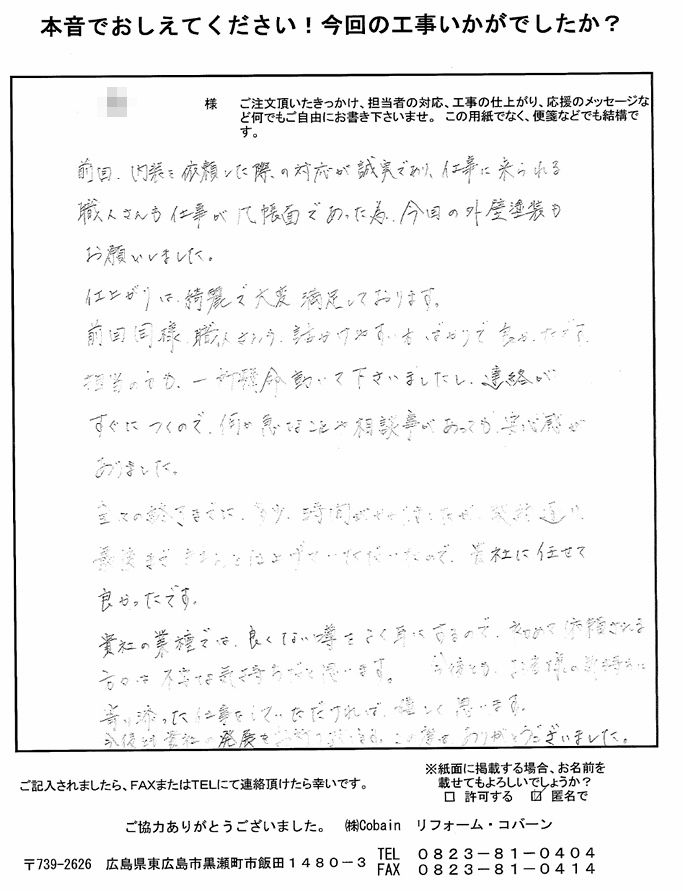 本音でおしえてください！今回の工事いかがでしたか？
様
ご注文頂いたきっかけ、担当者の対応、工事の仕上がり、応援のメッセージな
ど何でもご自由にお書き下さいませ。この用紙でなく、便箋などでも結構で
す。
前回、内装を依頼した際の対応が誠実であり、仕事に来られる
職人さんも仕事が几帳面であった為、今回の外壁塗装も
お願いしました。
仕上がりは、綺麗で大変満足しております。
前回同様、職人さんも、話かけやすい方ばかりで良かったです。
担当の方も、一所懸命動いて下さいましたし、連絡が
すぐにつくので、何か急なことや相談事があっても、安心感が
ありました。
全ての終了までに、多少、時間がかかりましたが、
最後まできちんと仕上げていただいたので、貴社に任せて
良かったです。
貴社の業種では、良くない噂をよく耳にするので、初めて依頼される
方々は不安な気持ちだと思います。今後とも、お客様の気持ちに
寄り添った仕事をしていただければ、嬉しく思います。
今後の貴社の発展をお祈り この度はありがとうございました。
ご記入されましたら、FAXまたはTELにて連絡頂けたら幸いです。
※紙面に掲載する場合、お名前を
載せてもよろしいでしょうか？
□ 許可する ☑ 匿名で
ご協力ありがとうございました。 ㈱Cobain リフォーム・コバーン
〒739-2626 広島県東広島市黒瀬町市飯田１４８０－３
TEL ０８２３－８１－０４０４
FAX ０８２３－８１－０４１４